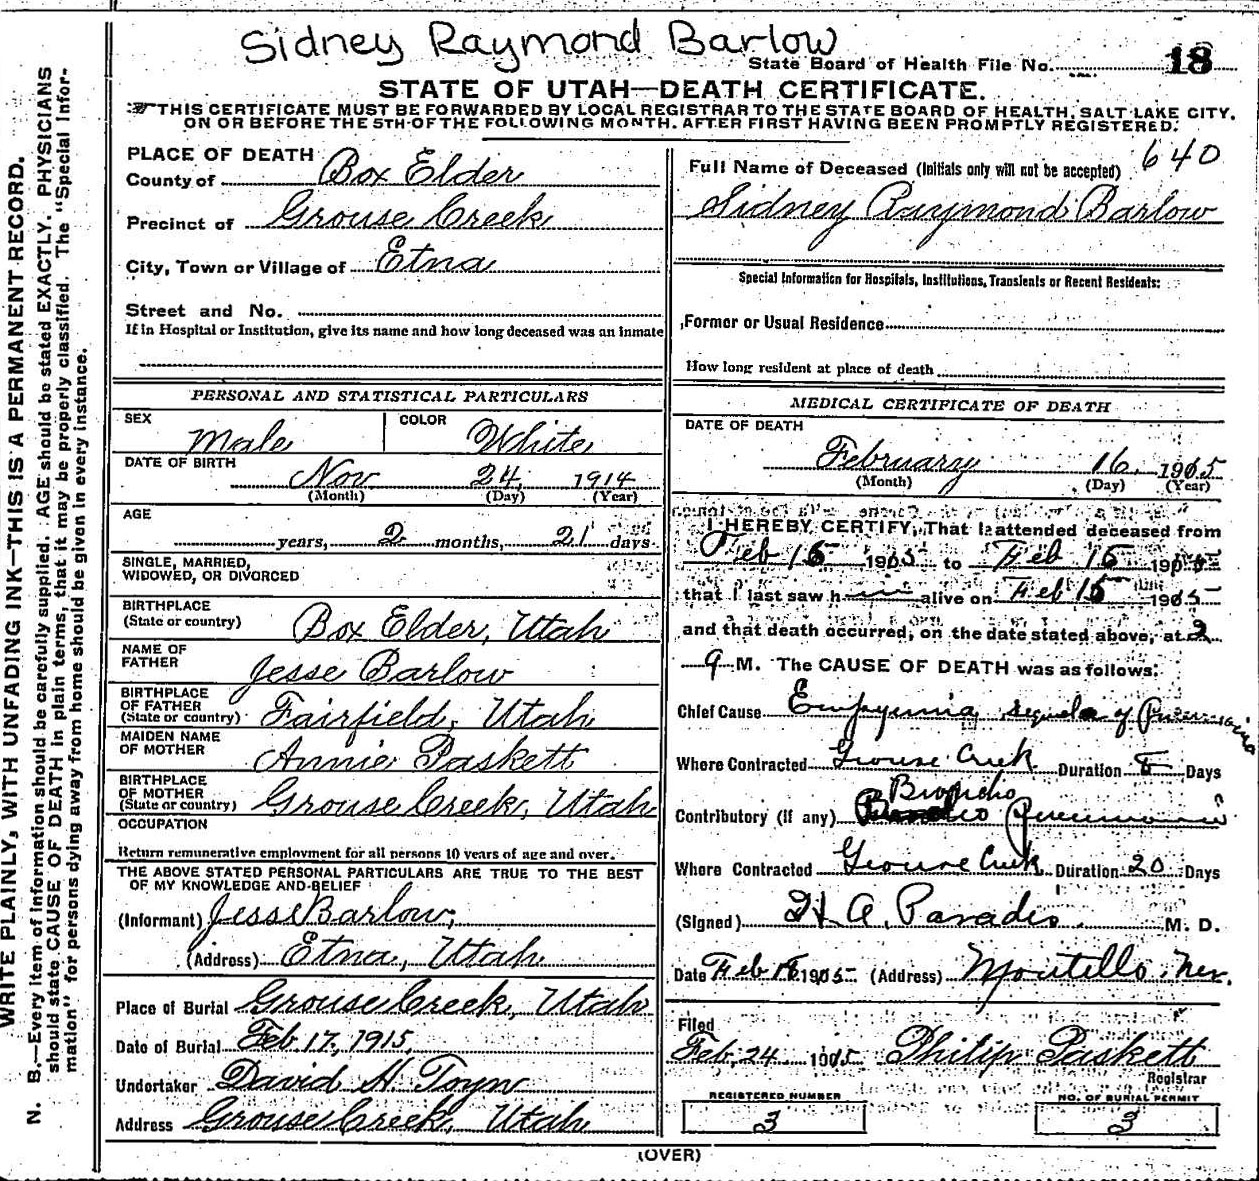 Sidney Raymond Barlow
State Board of Health File No. 18
STATE OF UTAH—DEATH CERTIFICATE.
THIS CERTIFICATE MUST BE FORWARDED BY LOCAL REGISTRAR TO THE STATE BOARD OF HEALTH, SALT LAKE CITY,
ON OR BEFORE THE 5TH OF THE FOLLOWING MONTH, AFTER FIRST HAVING BEEN PROMPTLY REGISTERED.
WRITE PLAINLY, WITH UNFADING INK—THIS IS A PERMANENT RECORD.
N. B.—Every item of information should be carefully supplied. AGE should be stated EXACTLY. PHYSICIANS
should state CAUSE OF DEATH in plain terms, that it may be properly classified. The "Special Infor-
mation" for persons dying away from home should be given in every instance.
PLACE OF DEATH
County of Box Elder
Precinct of Grouse Creek
City, Town or Village of Etna
Street and No.
If in Hospital or Institution, give its name and how long deceased was an inmate
PERSONAL AND STATISTICAL PARTICULARS
SEX Male COLOR White
DATE OF BIRTH Nov 24, 1914
(Month) (Day) (Year)
AGE
years, 2 months, 21 days
SINGLE, MARRIED,
WIDOWED, OR DIVORCED
BIRTHPLACE
(State or country) Box Elder, Utah
NAME OF
FATHER Jesse Barlow
BIRTHPLACE
OF FATHER
(State or country) Fairfield, Utah
MAIDEN NAME
OF MOTHER Annie Paskett
BIRTHPLACE
OF MOTHER
(State or country) Grouse Creek, Utah
OCCUPATION
Return remunerative employment for all persons 10 years of age and over.
THE ABOVE STATED PERSONAL PARTICULARS ARE TRUE TO THE BEST
OF MY KNOWLEDGE AND BELIEF
(Informant) Jesse Barlow,
(Address) Etna, Utah
Place of Burial Grouse Creek, Utah
Date of Burial Feb 17, 1915,
Undertaker David H. Toyn
Address Grouse Creek, Utah
640
Full Name of Deceased (Initials only will not be accepted)
Sidney Raymond Barlow
Special Information for Hospitals, Institutions, Transients or Recent Residents:
Former or Usual Residence
How long resident at place of death
MEDICAL CERTIFICATE OF DEATH
DATE OF DEATH
February 16, 1915
(Month) (Day) (Year)
I HEREBY CERTIFY, That I attended deceased from
Feb 15 1905 to Feb 15 190
that I last saw h im alive on Feb 15 1905
and that death occurred, on the date stated above, at 2
M. The CAUSE OF DEATH was as follows:
Chief Cause Empyemia, sequela of Pneumonia
Where Contracted Grouse Creek Duration 8 Days
Contributory (If any) Broncho Pneumonia
Where Contracted Grouse Creek Duration 20 Days
(Signed) H. A. Paradis M. D.
Date Feb 1905 (Address) Montello, Nev.
Filed
Feb. 24 1905 Philip Paskett
Registrar
REGISTERED NUMBER
3
NO. OF BURIAL PERMIT
3
(OVER)